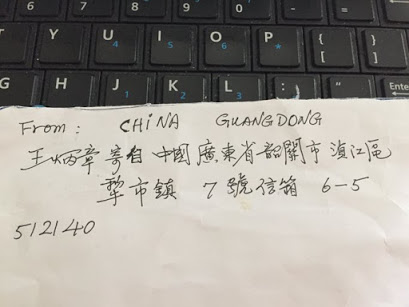 Y U I O P { [ } ]
4 5 6 *
G H J K L : ; " '
1 2 3 -
From: CHINA GUANGDONG
王炳章寄自中國廣東省韶關市滇江區
犂市鎮 7號信箱 6-5
512140